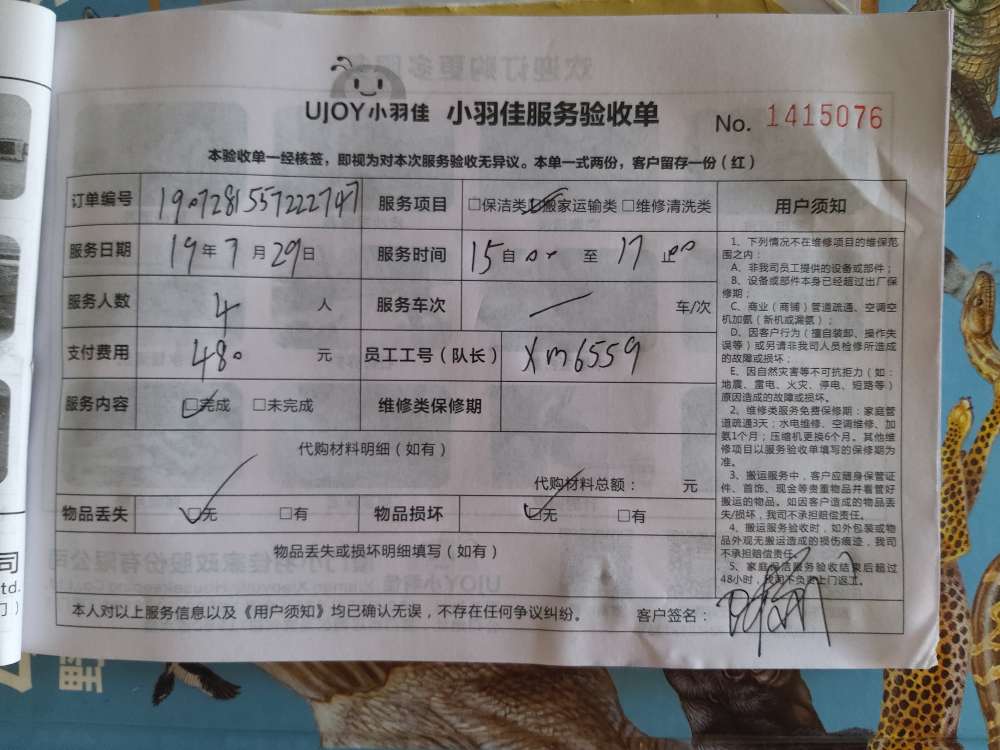 UJOY小羽佳 小羽佳服务验收单 No. 1415076
本验收单一经核签，即视为对本次服务验收无异议。本单一式两份，客户留存一份（红）
订单编号 1907281557222747 服务项目 □保洁类 ☑搬家运输类 □维修清洗类
服务日期 19年7月29日 服务时间 15自00 至 17止00
服务人数 4 人 服务车次 / 车/次
支付费用 480 元 员工工号（队长） Xm6559
服务内容 ☑完成 □未完成 维修类保修期
代购材料明细（如有）
代购材料总额： 元
物品丢失 ☑无 □有 物品损坏 ☑无 □有
物品丢失或损坏明细填写（如有）
本人对以上服务信息以及《用户须知》均已确认无误，不存在任何争议纠纷。 客户签名：
用户须知
1、下列情况不在维修项目的维保范
围之内：
A、非我司员工提供的设备或部件；
B、设备或部件本身已经超过出厂保
修期；
C、商业（商铺）管道疏通、空调空
机加氨（新机或漏氨）；
D、因客户行为（擅自装卸、操作失
误等）或另请非我司人员检修所造成
的故障或损坏；
E、因自然灾害等不可抗拒力（如：
地震、雷电、火灾、停电、短路等）
原因造成的故障或损坏。
2、维修类服务免费保修期：家庭管
道疏通3天；水电维修、空调维修、加
氨1个月；压缩机更换6个月。其他维
修项目以服务验收单填写的保修期为
准。
3、搬运服务中，客户应随身保管证
件、首饰、现金等贵重物品并看管好
搬运的物品。如因客户造成的物品丢
失/损坏，我司不承担赔偿责任。
4、搬运服务验收时，如外包装或物
品外观无搬运造成的损伤痕迹，我司
不承担赔偿责任。
5、家庭保洁服务验收结束后超过
48小时，我司不负责上门返工。